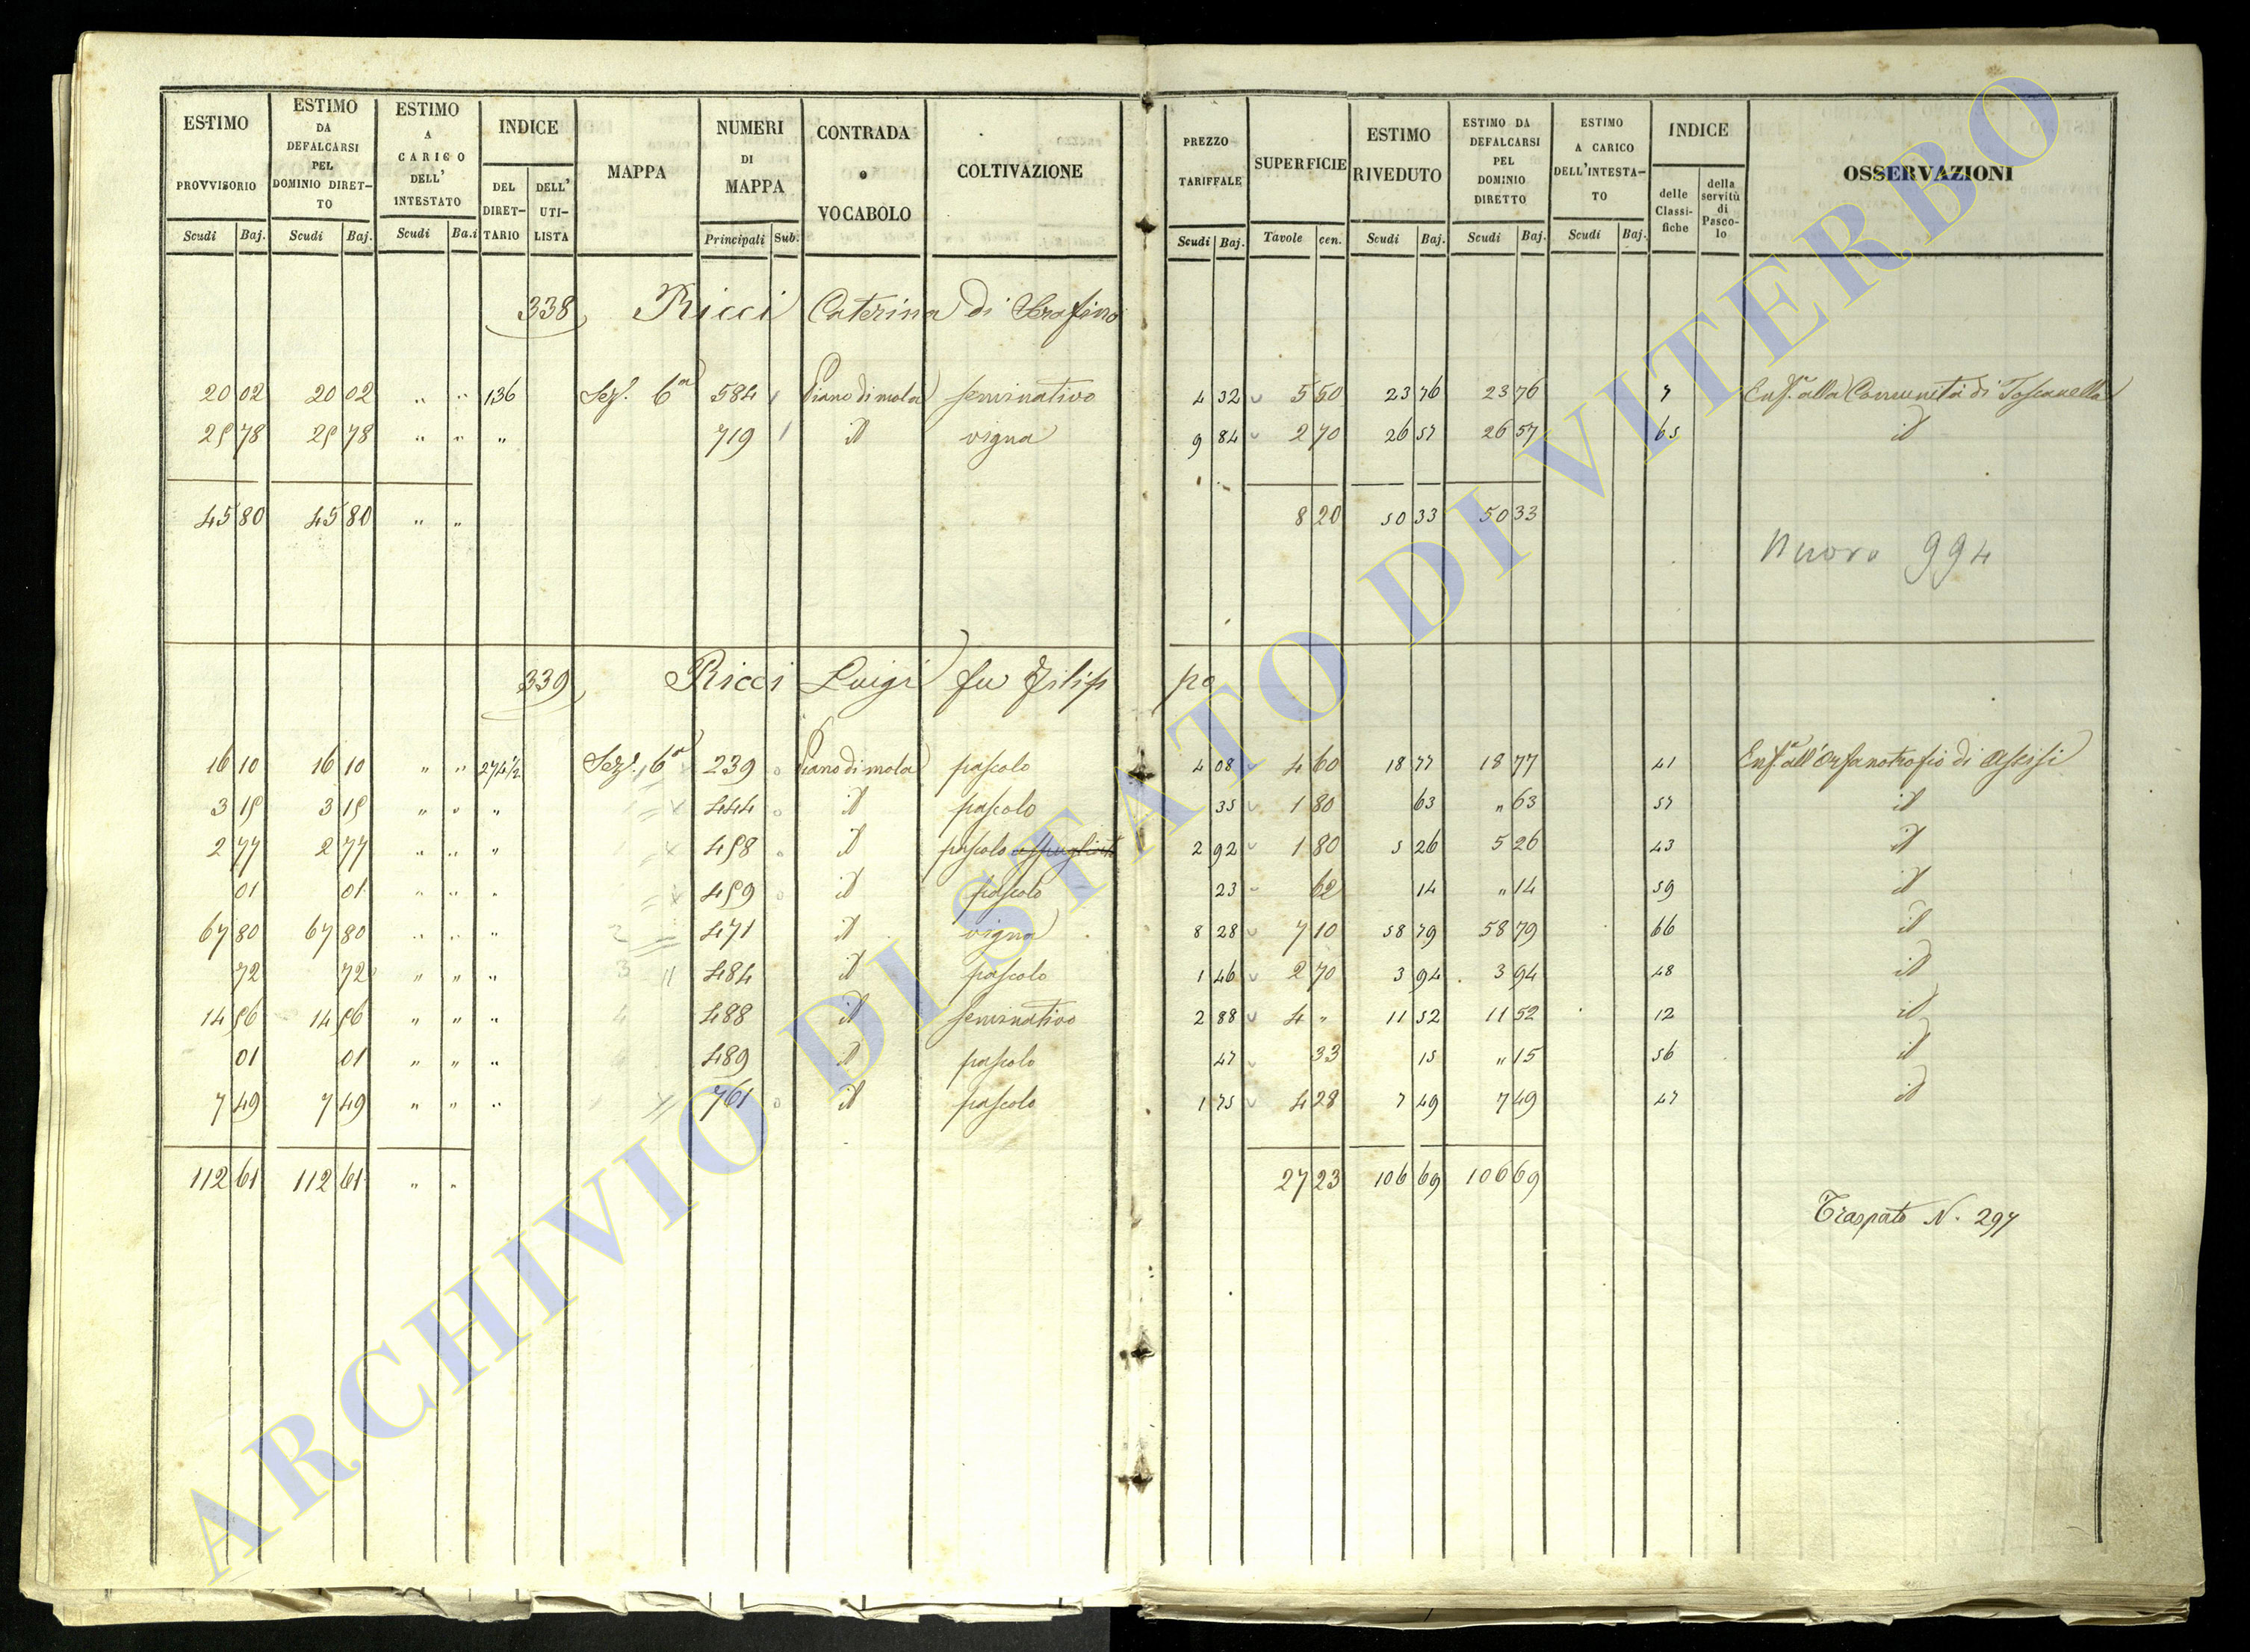 ESTIMO PROVVISORIO | ESTIMO DA DEFALCARSI PEL DOMINIO DIRETTO | ESTIMO A CARICO DELL' INTESTATO | INDICE | MAPPA | NUMERI DI MAPPA | CONTRADA o VOCABOLO | COLTIVAZIONE | PREZZO TARIFFALE | SUPERFICIE | ESTIMO RIVEDUTO | ESTIMO DA DEFALCARSI PEL DOMINIO DIRETTO | ESTIMO A CARICO DELL'INTESTATO | INDICE | OSSERVAZIONI
DEL DIRETTARIO | DELL' UTILISTA | delle Classifiche | della servitù di Pascolo
Scudi | Baj. | Scudi | Baj. | Scudi | Ba.i | Principali | Sub. | Scudi | Baj. | Tavole | cen. | Scudi | Baj. | Scudi | Baj. | Scudi | Baj.
338 Ricci Caterina di Serafino
20 02 | 20 02 | " " | 136 | Sez. 6a | 584 | Piano di mola | seminativo | 4 32 | 5 50 | 23 76 | 23 76 | 7 | Enfa. alla Comunità di Toscanella
25 78 | 25 78 | " " | " | 719 | id | vigna | 9 84 | 2 70 | 26 57 | 26 57 | 65 | id
45 80 | 45 80 | " " | 8 20 | 50 33 | 50 33
Nuovo 994
339 Ricci Luigi fu Filippo
16 10 | 16 10 | " " | 274 1/2 | Sez. 6a | 239 | Piano di mola | pascolo | 4 08 | 4 60 | 18 77 | 18 77 | 41 | Enfa. all'Orfanotrofio di Assisi
3 15 | 3 15 | " " | " | 444 | id | pascolo | 35 | 1 80 | 63 | " 63 | 57 | id
2 77 | 2 77 | " " | " | 458 | id | pascolo | 2 92 | 1 80 | 5 26 | 5 26 | 43 | id
01 | 01 | " " | " | 459 | id | pascolo | 23 | 62 | 14 | " 14 | 59 | id
67 80 | 67 80 | " " | " | 471 | id | vigna | 8 28 | 7 10 | 58 79 | 58 79 | 66 | id
72 | 72 | " " | " | 484 | id | pascolo | 1 46 | 2 70 | 3 94 | 3 94 | 48 | id
14 56 | 14 56 | " " | " | 488 | id | seminativo | 2 88 | 4 " | 11 52 | 11 52 | 12 | id
01 | 01 | " " | " | 489 | id | pascolo | 47 | 33 | 15 | " 15 | 56 | id
7 49 | 7 49 | " " | " | 761 | id | pascolo | 1 75 | 4 28 | 7 49 | 7 49 | 47 | id
112 61 | 112 61 | " " | 27 23 | 106 69 | 106 69
Traspato N. 297
ARCHIVIO DI STATO DI VITERBO